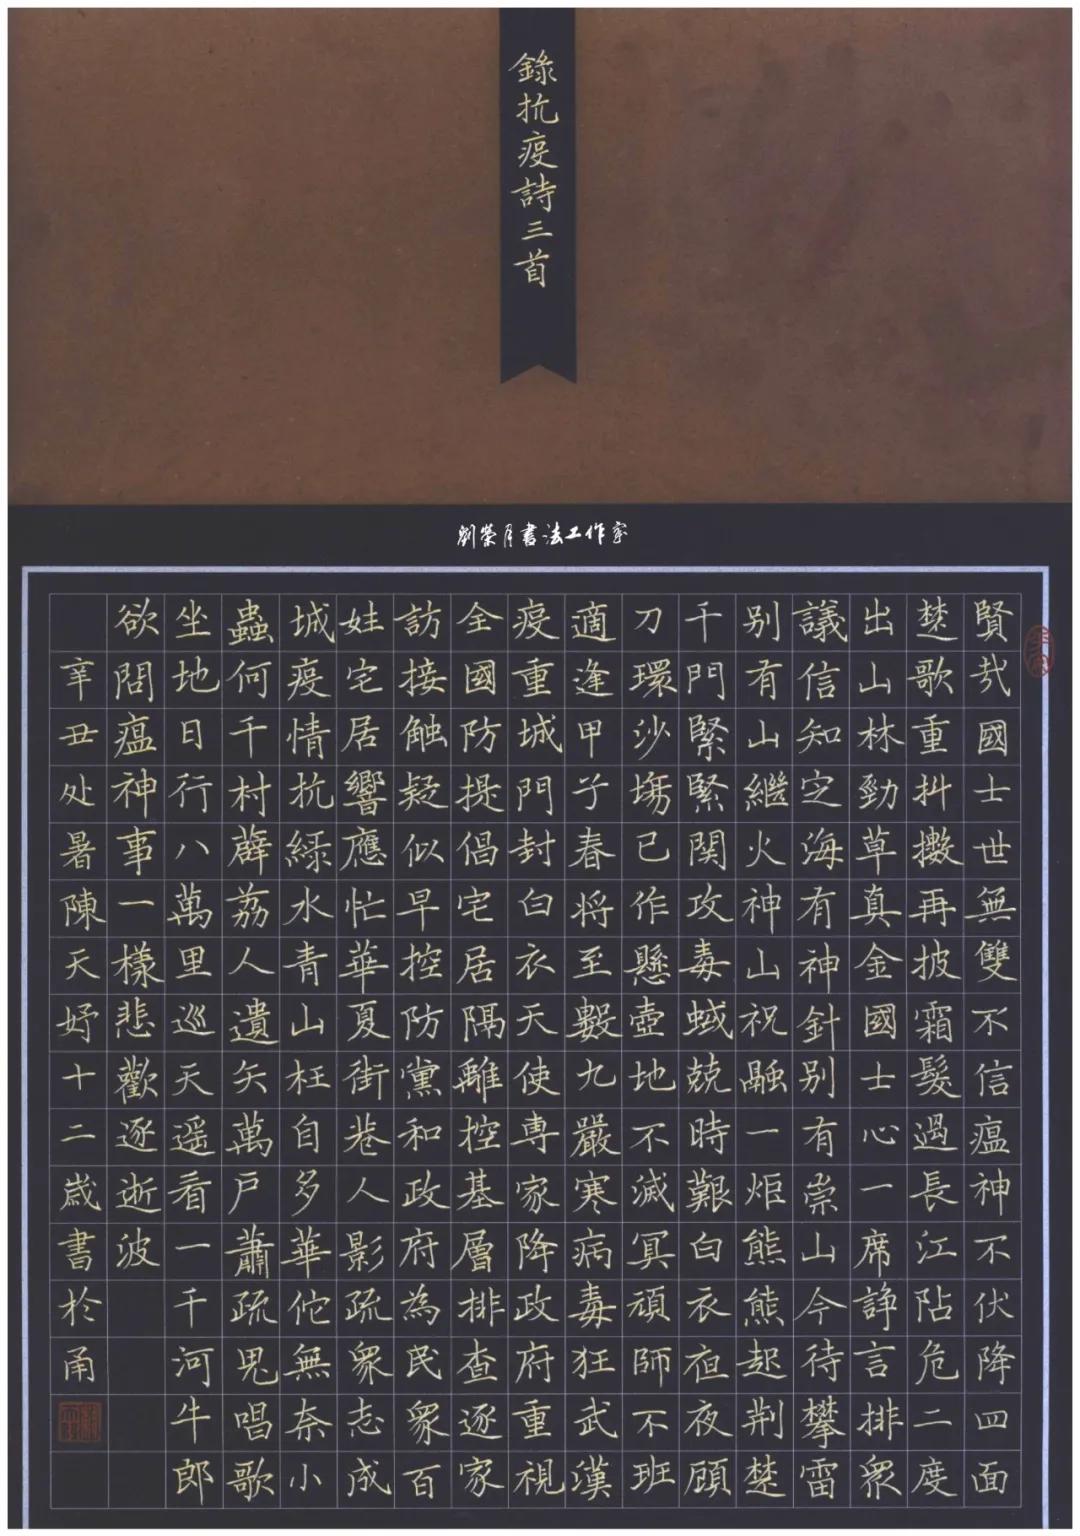 錄抗疫詩三首
劉榮月書法工作室
賢哉國士世無雙不信瘟神不伏降四面
楚歌重抖擻再披霜髮過長江阽危二度
出山林勁草真金國士心一席諍言排衆
議信知定海有神針別有崇山今待攀雷
别有山繼火神山祝融一炬熊熊起荆楚
千門緊緊関攻毒蜮兢時艱白衣夜夜顧
刀環沙場已作懸壺地不滅冥頑師不班
適逢甲子春將至數九嚴寒病毒狂武漢
疫重城門封白衣天使專家降政府重視
全國防提倡宅居隔離控基層排查逐家
訪接触疑似早控防黨和政府為民衆百
姓宅居響應忙華夏街巷人影疏衆志成
城疫情抗綠水青山枉自多華佗無奈小
蟲何千村薜荔人遺矢萬户蕭疏鬼唱歌
坐地日行八萬里巡天遥看一千河牛郎
欲問瘟神事一樣悲歡逐逝波
辛丑处暑陳天妤十二歲書於甬